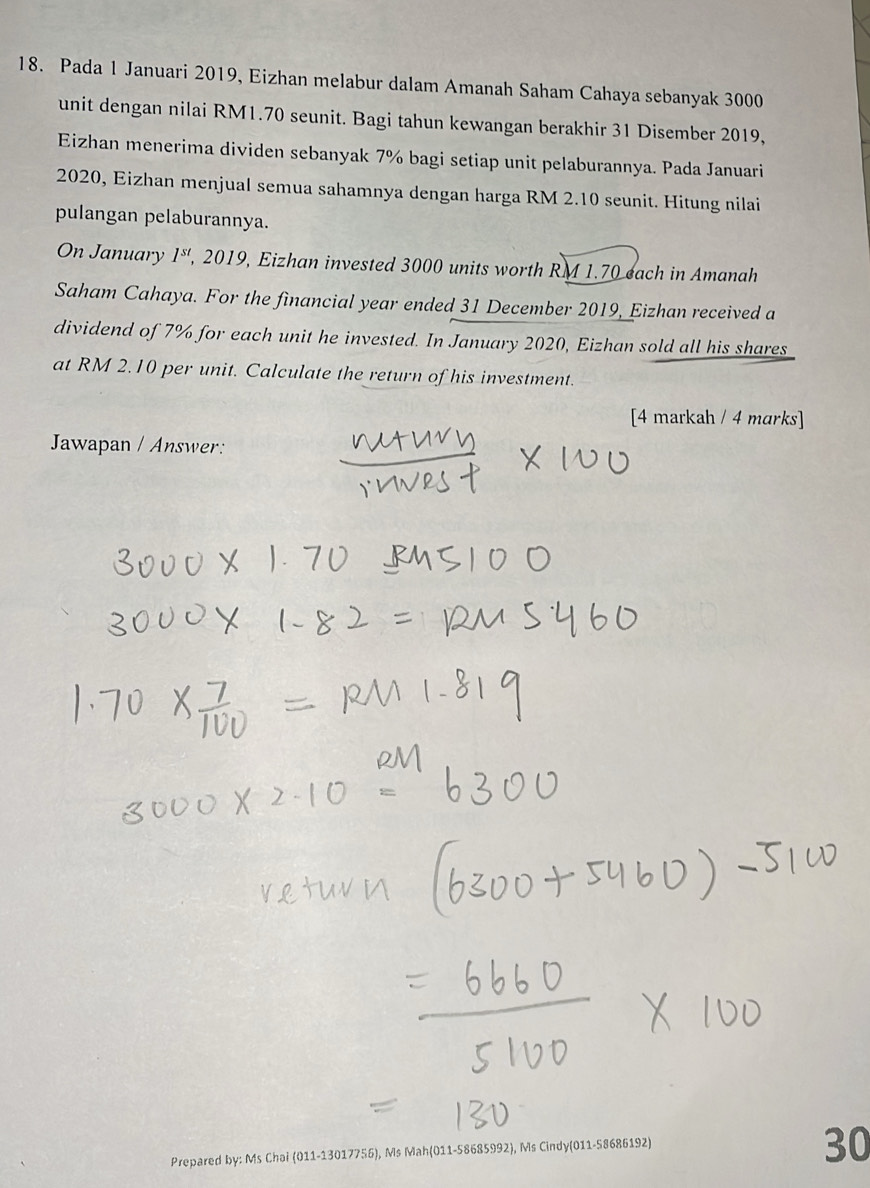 18. Pada 1 Januari 2019, Eizhan melabur dalam Amanah Saham Cahaya sebanyak 3000
unit dengan nilai RM1.70 seunit. Bagi tahun kewangan berakhir 31 Disember 2019,
Eizhan menerima dividen sebanyak 7% bagi setiap unit pelaburannya. Pada Januari
2020, Eizhan menjual semua sahamnya dengan harga RM 2.10 seunit. Hitung nilai
pulangan pelaburannya.
On January 1st, 2019, Eizhan invested 3000 units worth RM 1.70 each in Amanah
Saham Cahaya. For the financial year ended 31 December 2019, Eizhan received a
dividend of 7% for each unit he invested. In January 2020, Eizhan sold all his shares
at RM 2.10 per unit. Calculate the return of his investment.
[4 markah / 4 marks]
Jawapan / Answer:
return
invest × 100
3000 × 1.70 RM5100
3000 × 1.82 = RM 5460
1.70 × 7/100 = RM 1.819
3000 × 2.10 = RM 6300
return (6300 + 5460) - 5100
= 6660
5100 × 100
= 130
Prepared by: Ms Chai (011-13017756), Ms Mah(011-58685992), Ms Cindy(011-58686192)
30